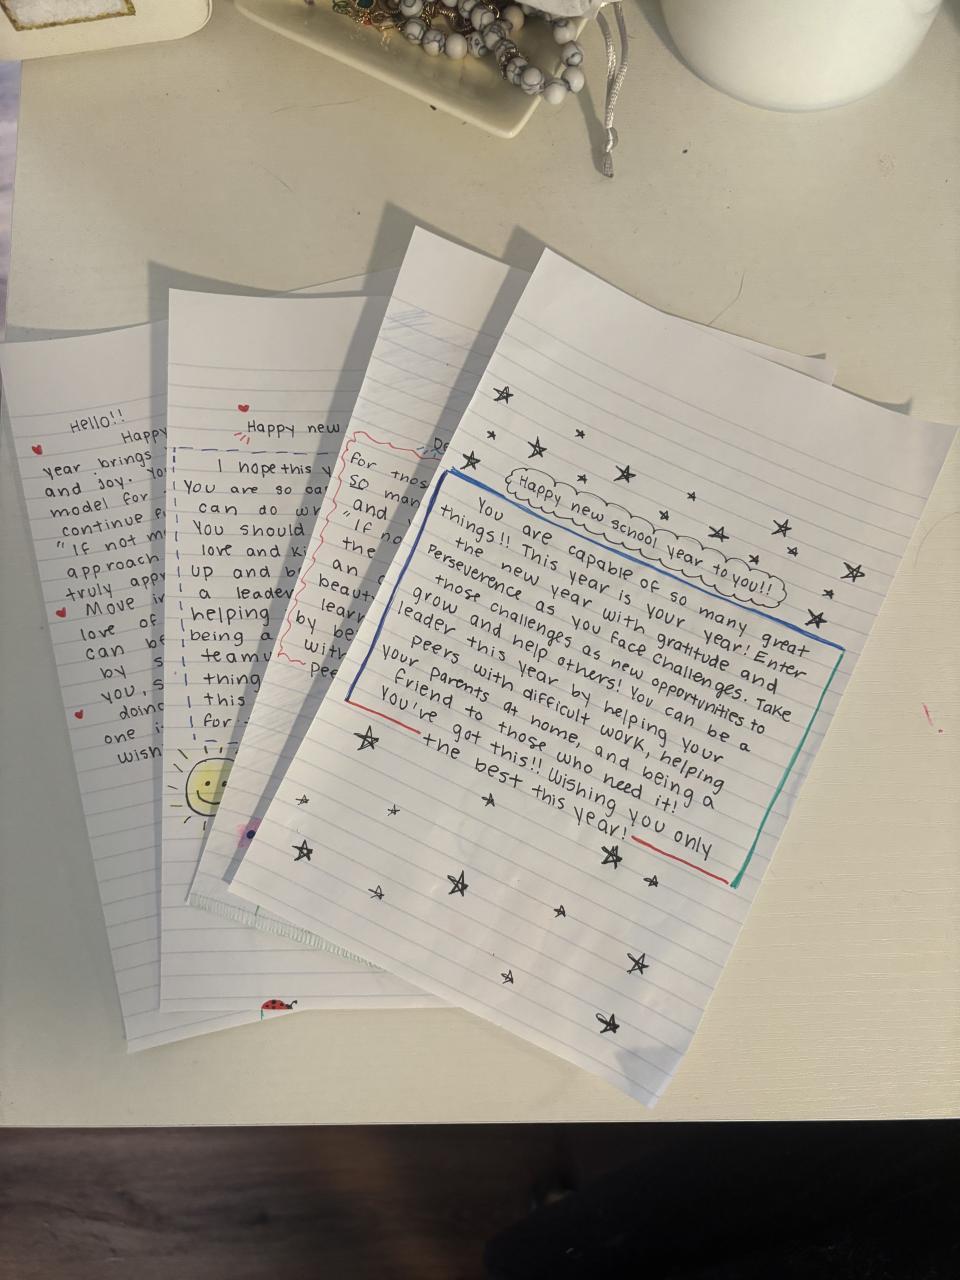 Hello!!
Happy
year brings
and joy. Yo
model for
continue
"If not m
approach
truly app
Move in
love of
can be
by s
you, s
doing
one i
wish
Happy new
I hope this y
You are so
can do w
You should
love and ki
up and b
a leader
helping
being a
teamw
thing
this
for
De
For thos
so man
and
"If no
the
an
beaut
learn
by be
with
pee
Happy new school year to you!!
You are capable of so many great
things!! This year is your year! Enter
the new year with gratitude and
perseverence as you face challenges. Take
those challenges as new opportunities to
grow and help others! You can be a
leader this year by helping your
peers with difficult work, helping
your parents at home, and being a
friend to those who need it!
You've got this!! Wishing you only
the best this year!